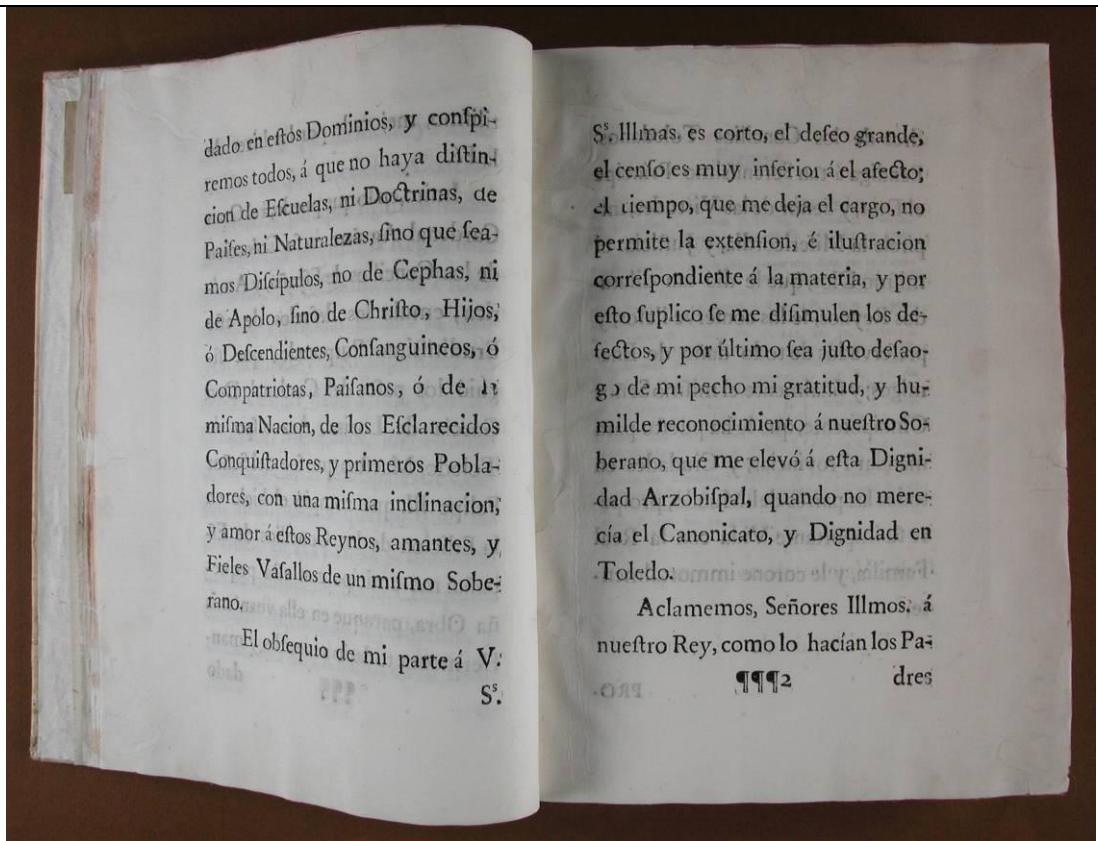 dado en eſtos Dominios, y conſpi-
remos todos, á que no haya diſtin-
cion de Eſcuelas, ni Doctrinas, de
Paiſes, ni Naturalezas, ſino que ſea-
mos Diſcípulos, no de Cephas, ni
de Apolo, ſino de Chriſto, Hijos,
ó Deſcendientes, Conſanguineos, ó
Compatriotas, Paiſanos, ó de
miſma Nacion, de los Eſclarecidos
Conquiſtadores, y primeros Pobla-
dores, con una miſma inclinacion,
y amor á eſtos Reynos, amantes, y
Fieles Vaſallos de un miſmo Sobe-
rano.
El obſequio de mi parte á V.
Sˢ.
Sˢ. Illmas. es corto, el deſeo grande,
el cenſo es muy inferior á el afecto;
el tiempo, que me deja el cargo, no
permite la extenſion, é iluſtracion
correſpondiente á la materia, y por
eſto ſuplico ſe me diſimulen los de-
fectos, y por último ſea juſto deſao-
go de mi pecho mi gratitud, y hu-
milde reconocimiento á nueſtro So-
berano, que me elevó á eſta Digni-
dad Arzobiſpal, quando no mere-
cía el Canonicato, y Dignidad en
Toledo.
Aclamemos, Señores Illmos. á
nueſtro Rey, como lo hacían los Pa-
¶¶¶2 dres